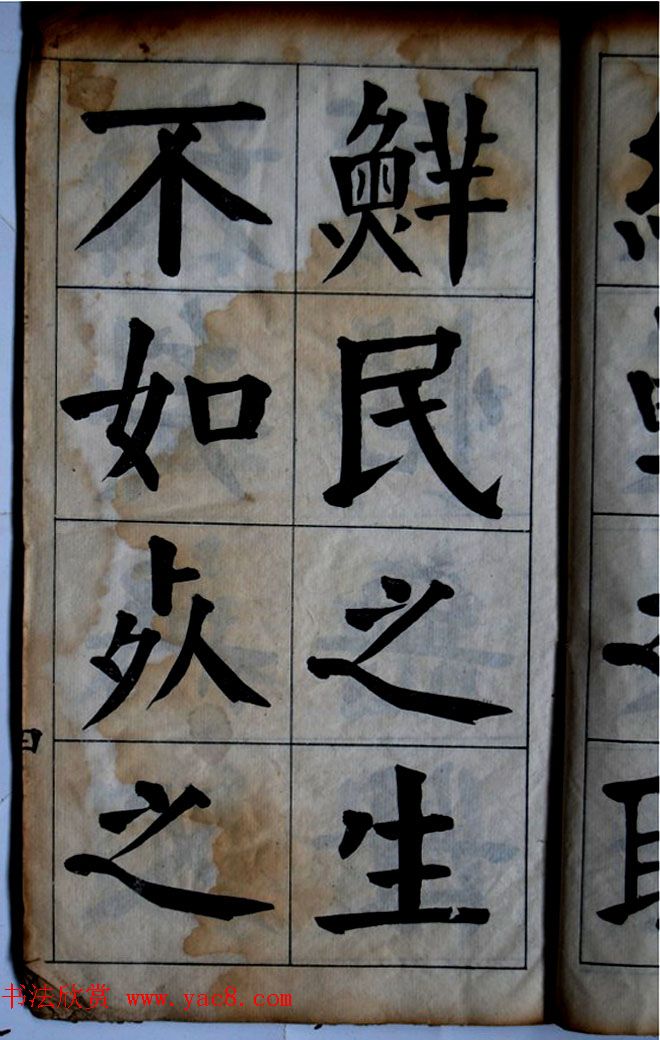 鮮民之生
不如㱔之
四
书法欣赏 www.yac8.com